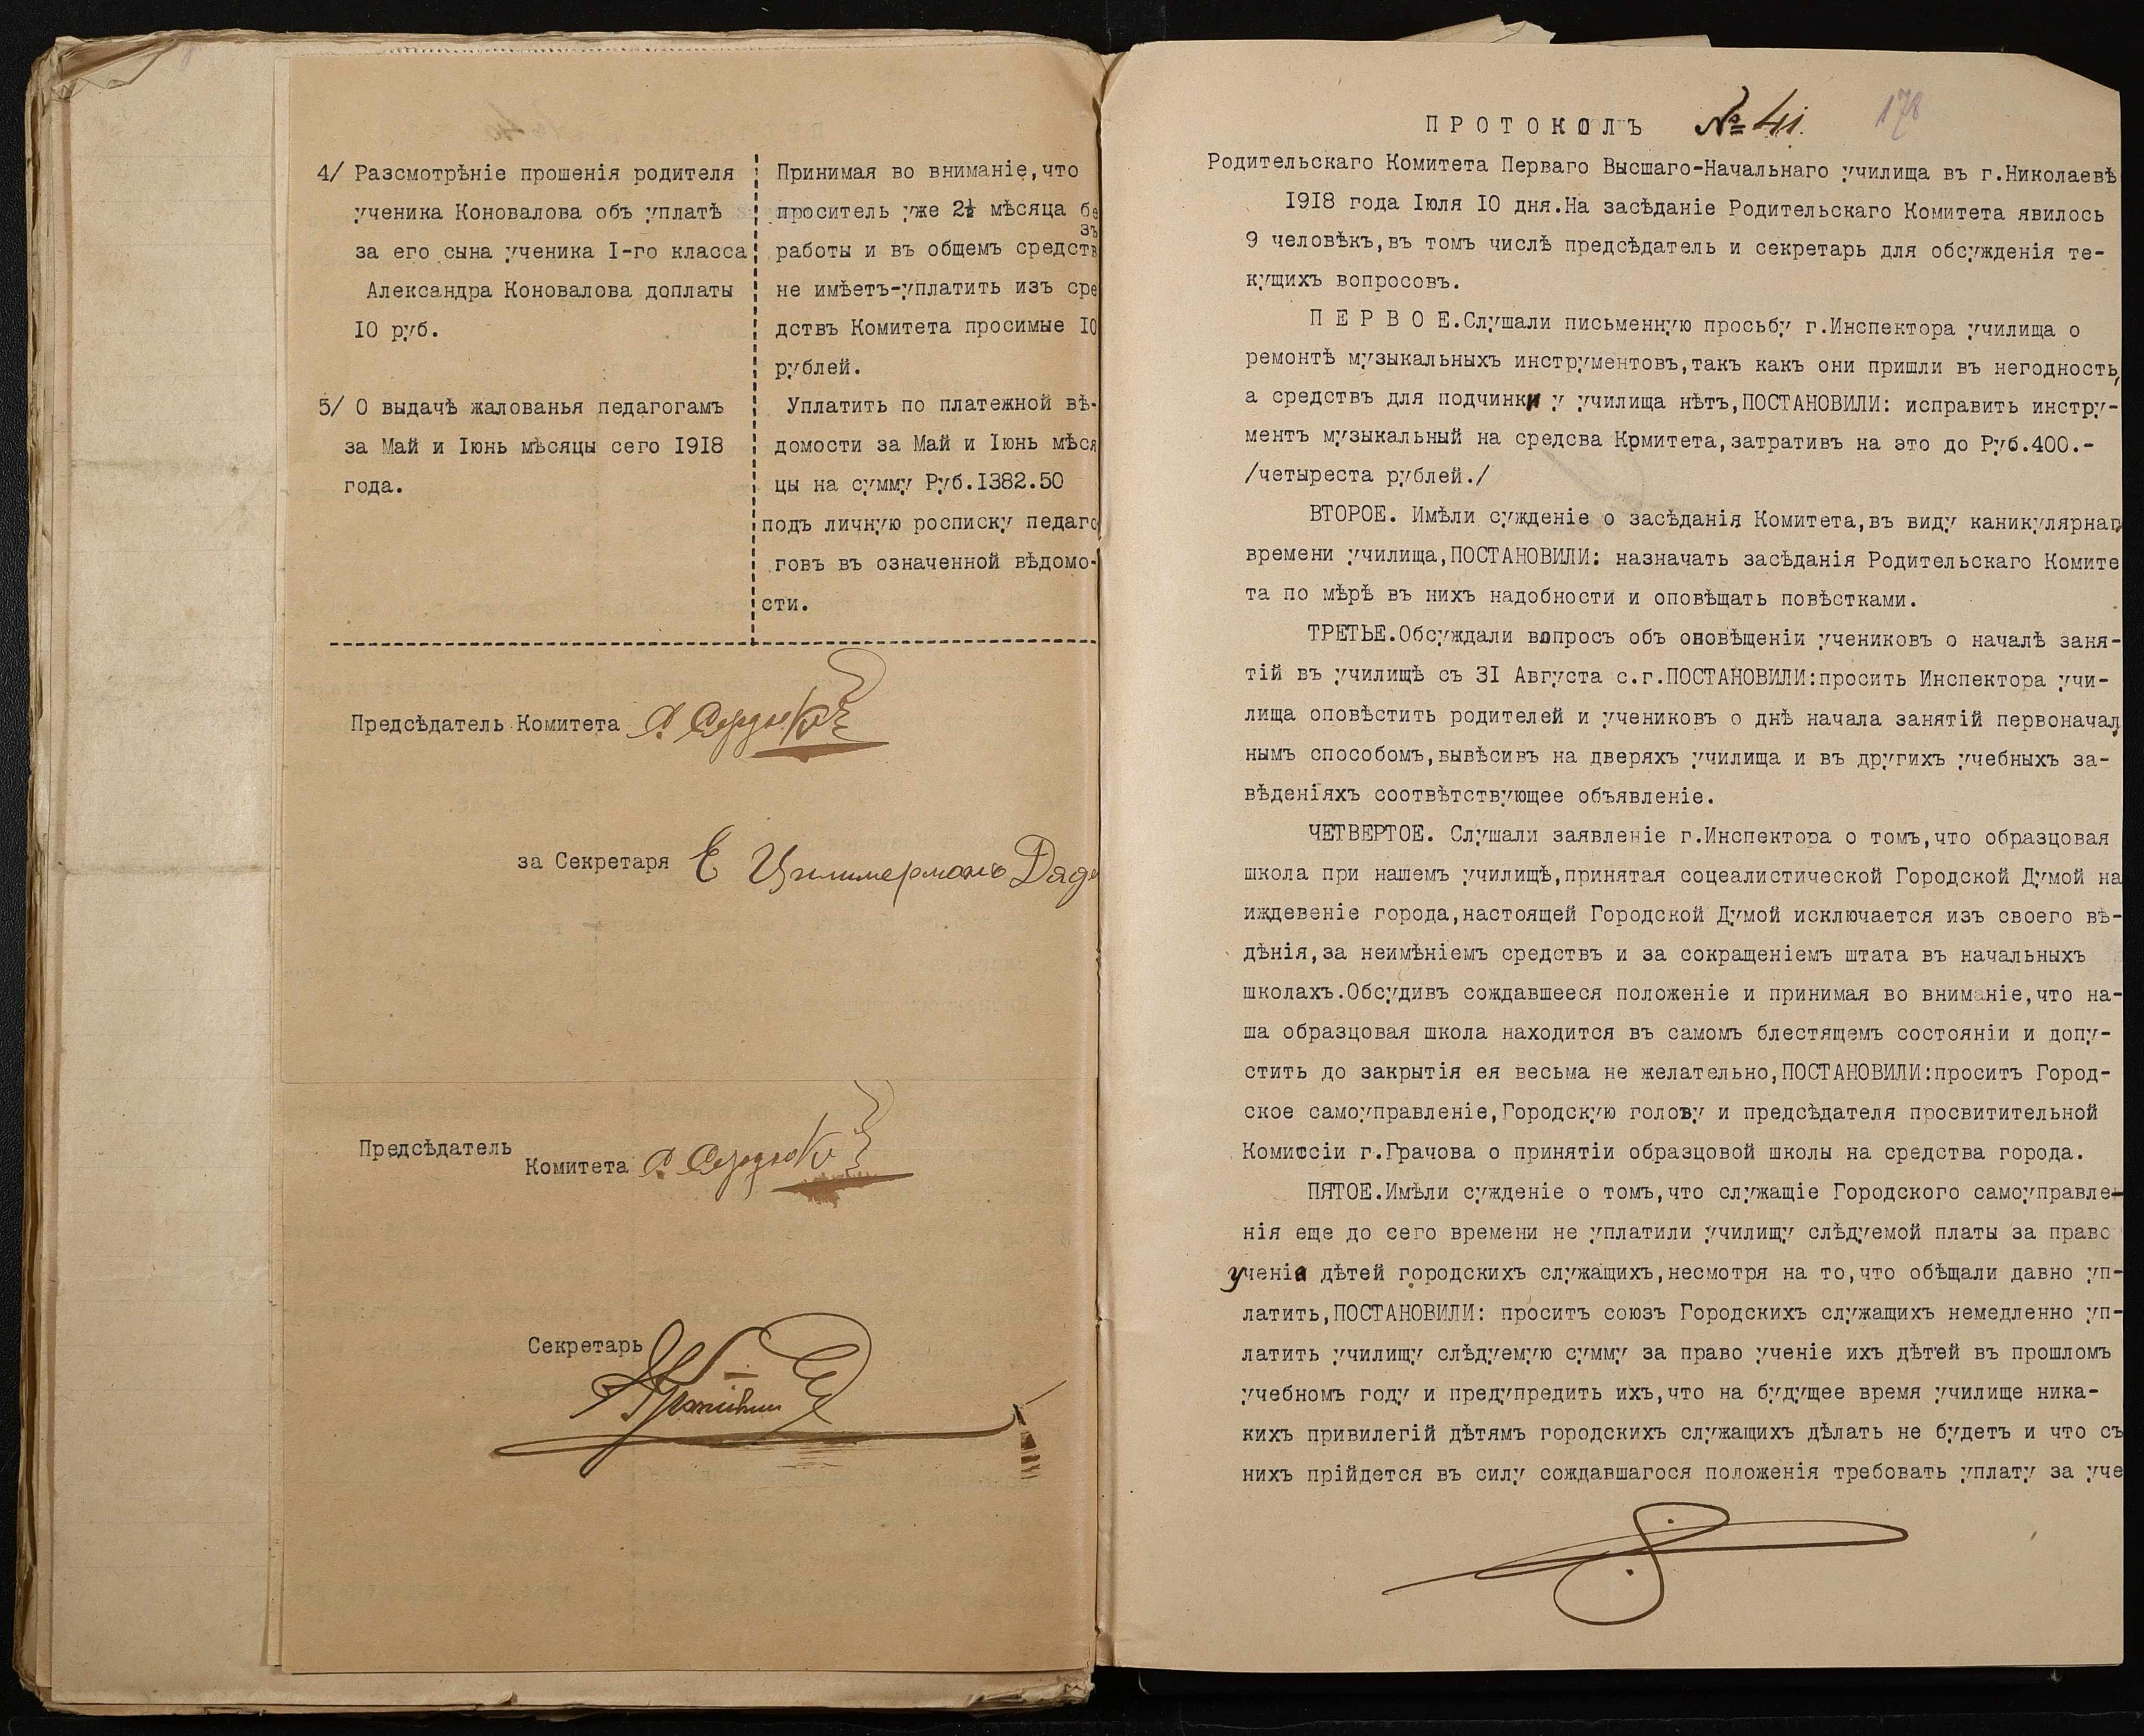 4/ Разсмотрѣніе прошенія родителя
ученика Коновалова объ уплатѣ
за его сына ученика I-го класса
Александра Коновалова доплаты
IO руб.
5/ О выдачѣ жалованья педагогамъ
за Май и Iюнь мѣсяцы сего I9I8
года.
Принимая во вниманіе,что
проситель уже 2½ мѣсяца бе
зъ
работы и въ общемъ средств
не имѣетъ-уплатить изъ сре
дствъ Комитета просимые IO
рублей.
Уплатить по платежной вѣ-
домости за Май и Iюнь мѣся
цы на сумму Руб.I382.50
подъ личную росписку педаго
говъ въ означенной вѣдомо-
сти.
Предсѣдатель Комитета
за Секретаря Е Циммерманъ
Предсѣдатель
Комитета
Секретарь
П Р О Т О К О Л Ъ № 41.
178
Родительскаго Комитета Перваго Высшаго-Начальнаго училища въ г.Николаевѣ
I9I8 года Iюля IO дня.На засѣданіе Родительскаго Комитета явилось
9 человѣкъ,въ томъ числѣ предсѣдатель и секретарь для обсужденія те-
кущихъ вопросовъ.
П Е Р В О Е.Слушали письменную просьбу г.Инспектора училища о
ремонтѣ музыкальныхъ инструментовъ,такъ какъ они пришли въ негодность,
а средствъ для подчинки у училища нѣтъ,ПОСТАНОВИЛИ: исправить инстру-
ментъ музыкальный на средсва Крмитета,затративъ на это до Руб.400.-
/четыреста рублей./
ВТОРОЕ. Имѣли сужденіе о засѣданія Комитета,въ виду каникулярнаг
времени училища,ПОСТАНОВИЛИ: назначать засѣданія Родительскаго Комите
та по мѣрѣ въ нихъ надобности и оповѣщать повѣстками.
ТРЕТЬЕ.Обсуждали вопросъ объ оновѣщеніи учениковъ о началѣ заня-
тій въ училищѣ съ 3I Августа с.г.ПОСТАНОВИЛИ:просить Инспектора учи-
лища оповѣстить родителей и учениковъ о днѣ начала занятій первоначал
нымъ способомъ,вывѣсивъ на дверяхъ училища и въ другихъ учебныхъ за-
вѣденіяхъ соотвѣтствующее объявленіе.
ЧЕТВЕРТОЕ. Слушали заявленіе г.Инспектора о томъ,что образцовая
школа при нашемъ училищѣ,принятая соцеалистической Городской Думой на
иждевеніе города,настоящей Городской Думой исключается изъ своего вѣ-
дѣнія,за неимѣніемъ средствъ и за сокращеніемъ штата въ начальныхъ
школахъ.Обсудивъ сождавшееся положеніе и принимая во вниманіе,что на-
ша образцовая школа находится въ самомъ блестящемъ состояніи и допу-
стить до закрытія ея весьма не желательно,ПОСТАНОВИЛИ:проситъ Город-
ское самоуправленіе,Городскую голову и предсѣдателя просвитительной
Комиссіи г.Грачова о принятіи образцовой школы на средства города.
ПЯТОЕ.Имѣли сужденіе о томъ,что служащіе Городского самоуправле-
нія еще до сего времени не уплатили училищу слѣдуемой платы за право
ученія дѣтей городскихъ служащихъ,несмотря на то,что обѣщали давно уп-
латить,ПОСТАНОВИЛИ: проситъ союзъ Городскихъ служащихъ немедленно уп-
латить училищу слѣдуемую сумму за право ученіе ихъ дѣтей въ прошломъ
учебномъ году и предупредить ихъ,что на будущее время училище ника-
кихъ привилегій дѣтямъ городскихъ служащихъ дѣлать не будетъ и что съ
нихъ прійдется въ силу сождавшагося положенія требовать уплату за уче